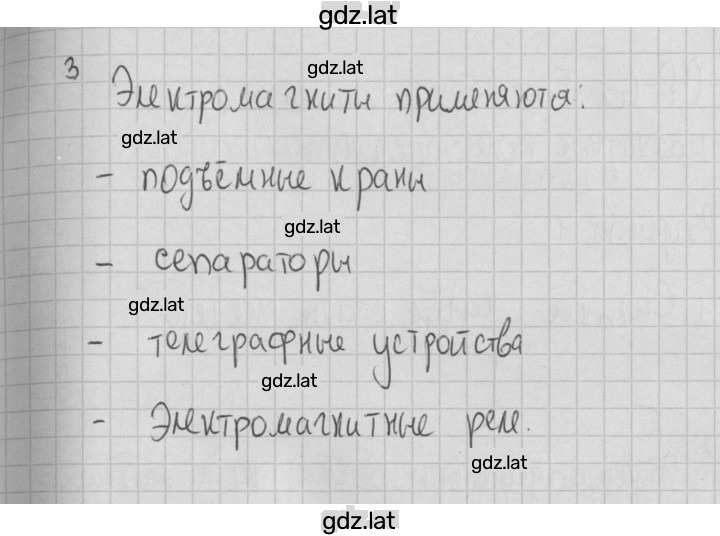 gdz.lat
3
gdz.lat
Электромагниты применяются:
gdz.lat
- подъёмные краны
gdz.lat
- сепараторы
gdz.lat
- телеграфные устройства
gdz.lat
- Электромагнитные реле.
gdz.lat
gdz.lat